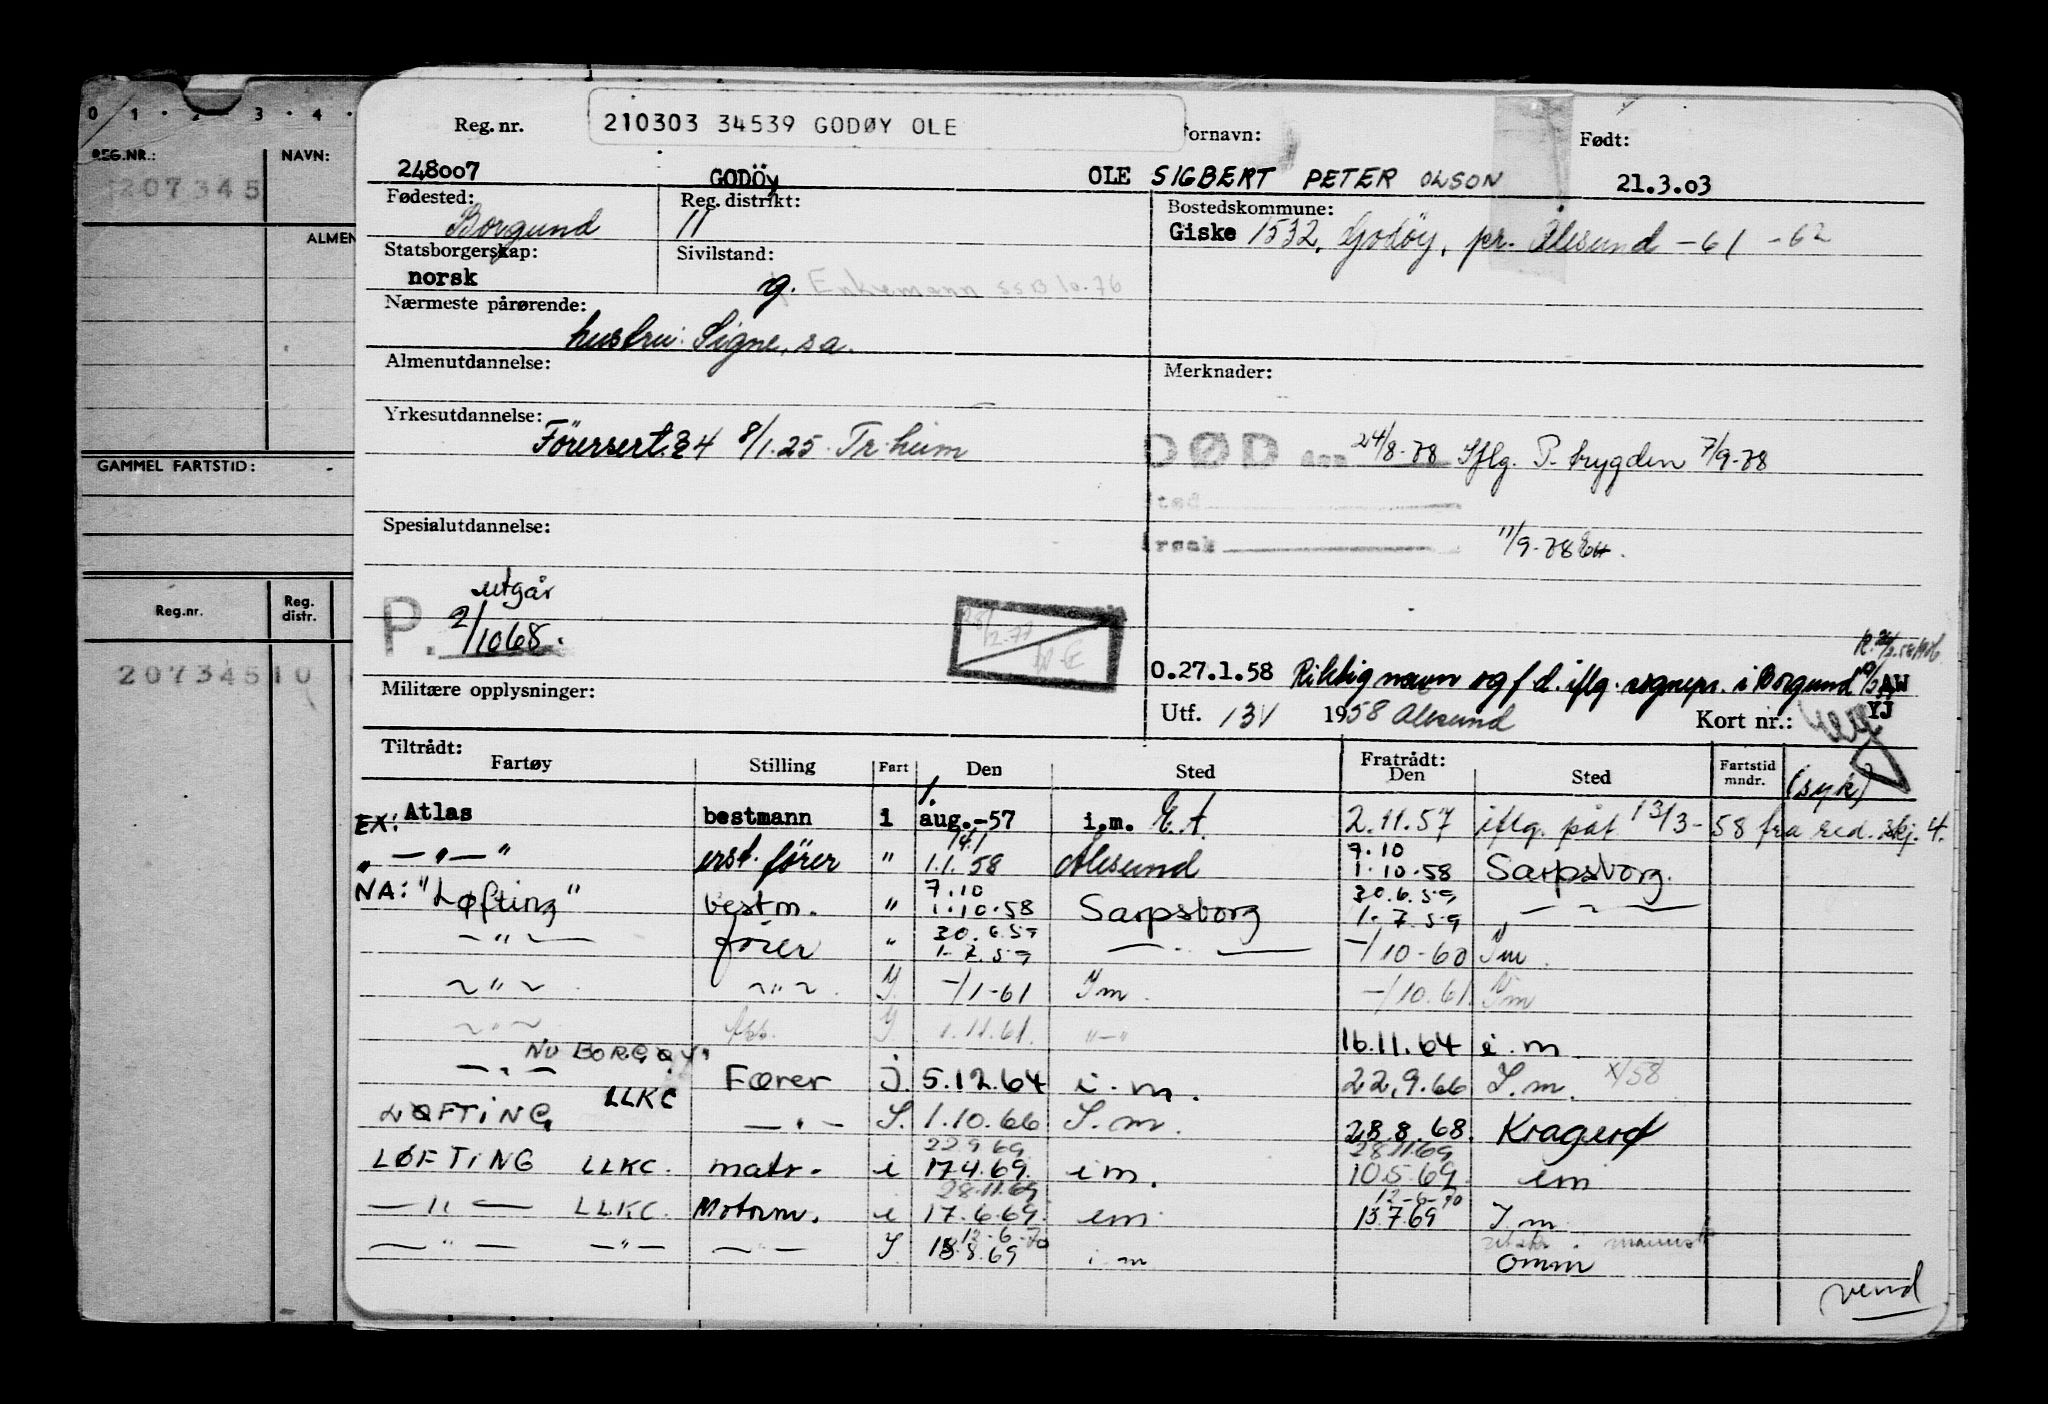 0 1 · 2 · 3 · 4 ·
REG.NR.: NAVN:
207345
ALMEN
GAMMEL FARTSTID:
Reg.nr. Reg. distr.
20734510
Reg. nr. 210303 34539 GODØY OLE ornavn: Født:
248007 GODÖy OLE SIGBERT PETER OLSON 21.3.03
Fødested: Borgund Reg. distrikt: 11 Bostedskommune:
Giske 1532, Godöy, pr. Ålesund -61 -62
Statsborgerskap: Sivilstand:
norsk g. Enkemann 10.76
Nærmeste pårørende:
hustru: Signe, sa.
Almenutdannelse: Merknader:
Yrkesutdannelse:
Förersert. 24 8/1.25 Tr.heim
DØD den 24/8-78 Iflg. P. trygden 7/9-78
sted
årsak 11/9-78
Spesialutdannelse:
P. utgår
2/1068.
Militære opplysninger:
O.27.1.58 Riktig navn og f d. iflg. sognepr. i Borgund AW
Utf. 13/ 1958 Ålesund Kort nr.: YJ
Tiltrådt: Fratrådt:
Fartøy Stilling Fart Den Sted Den Sted Fartstid mndr. (syk)
EX: Atlas bestmann i 1. aug.-57 i.m. E.A. 2.11.57 iflg. påt 13/3-58 fra red. skj. 4.
„ — „ — „ erst. fører „ 1.1.58 Ålesund 7.10 1.10.58 Sarpsborg.
NA: "Løfting" bestm. „ 7.10 1.10.58 Sarpsborg 30.6.59 1.7.59 — „ —
— „ — fører „ 30.6.59 1.7.59 — „ — -/10-60 Im.
— „ — — „ — I. -/1-61 Im. -/10.61. Im
— „ — I 1.11.61. „—„ 16.11.64 i.m.
NU BORGØY
— „ — Fører i. 5.12.64 i.m. 22.9.66 I.m. X/58
LØFTING LLKC — „ — I. 1.10.66 I.m. 28.8.68. Kragerø
LØFTING LLKC. matr. i 22.9.69. 17.4.69. im. 28.11.69 10.5.69. im
— „ — LLKC. Motorm. i 28.11.69 17.6.69. im 12-6-70 13.7.69 I m
— „ — — „ — — „ — I. 12-6-70 18.8.69 i m omm
vend